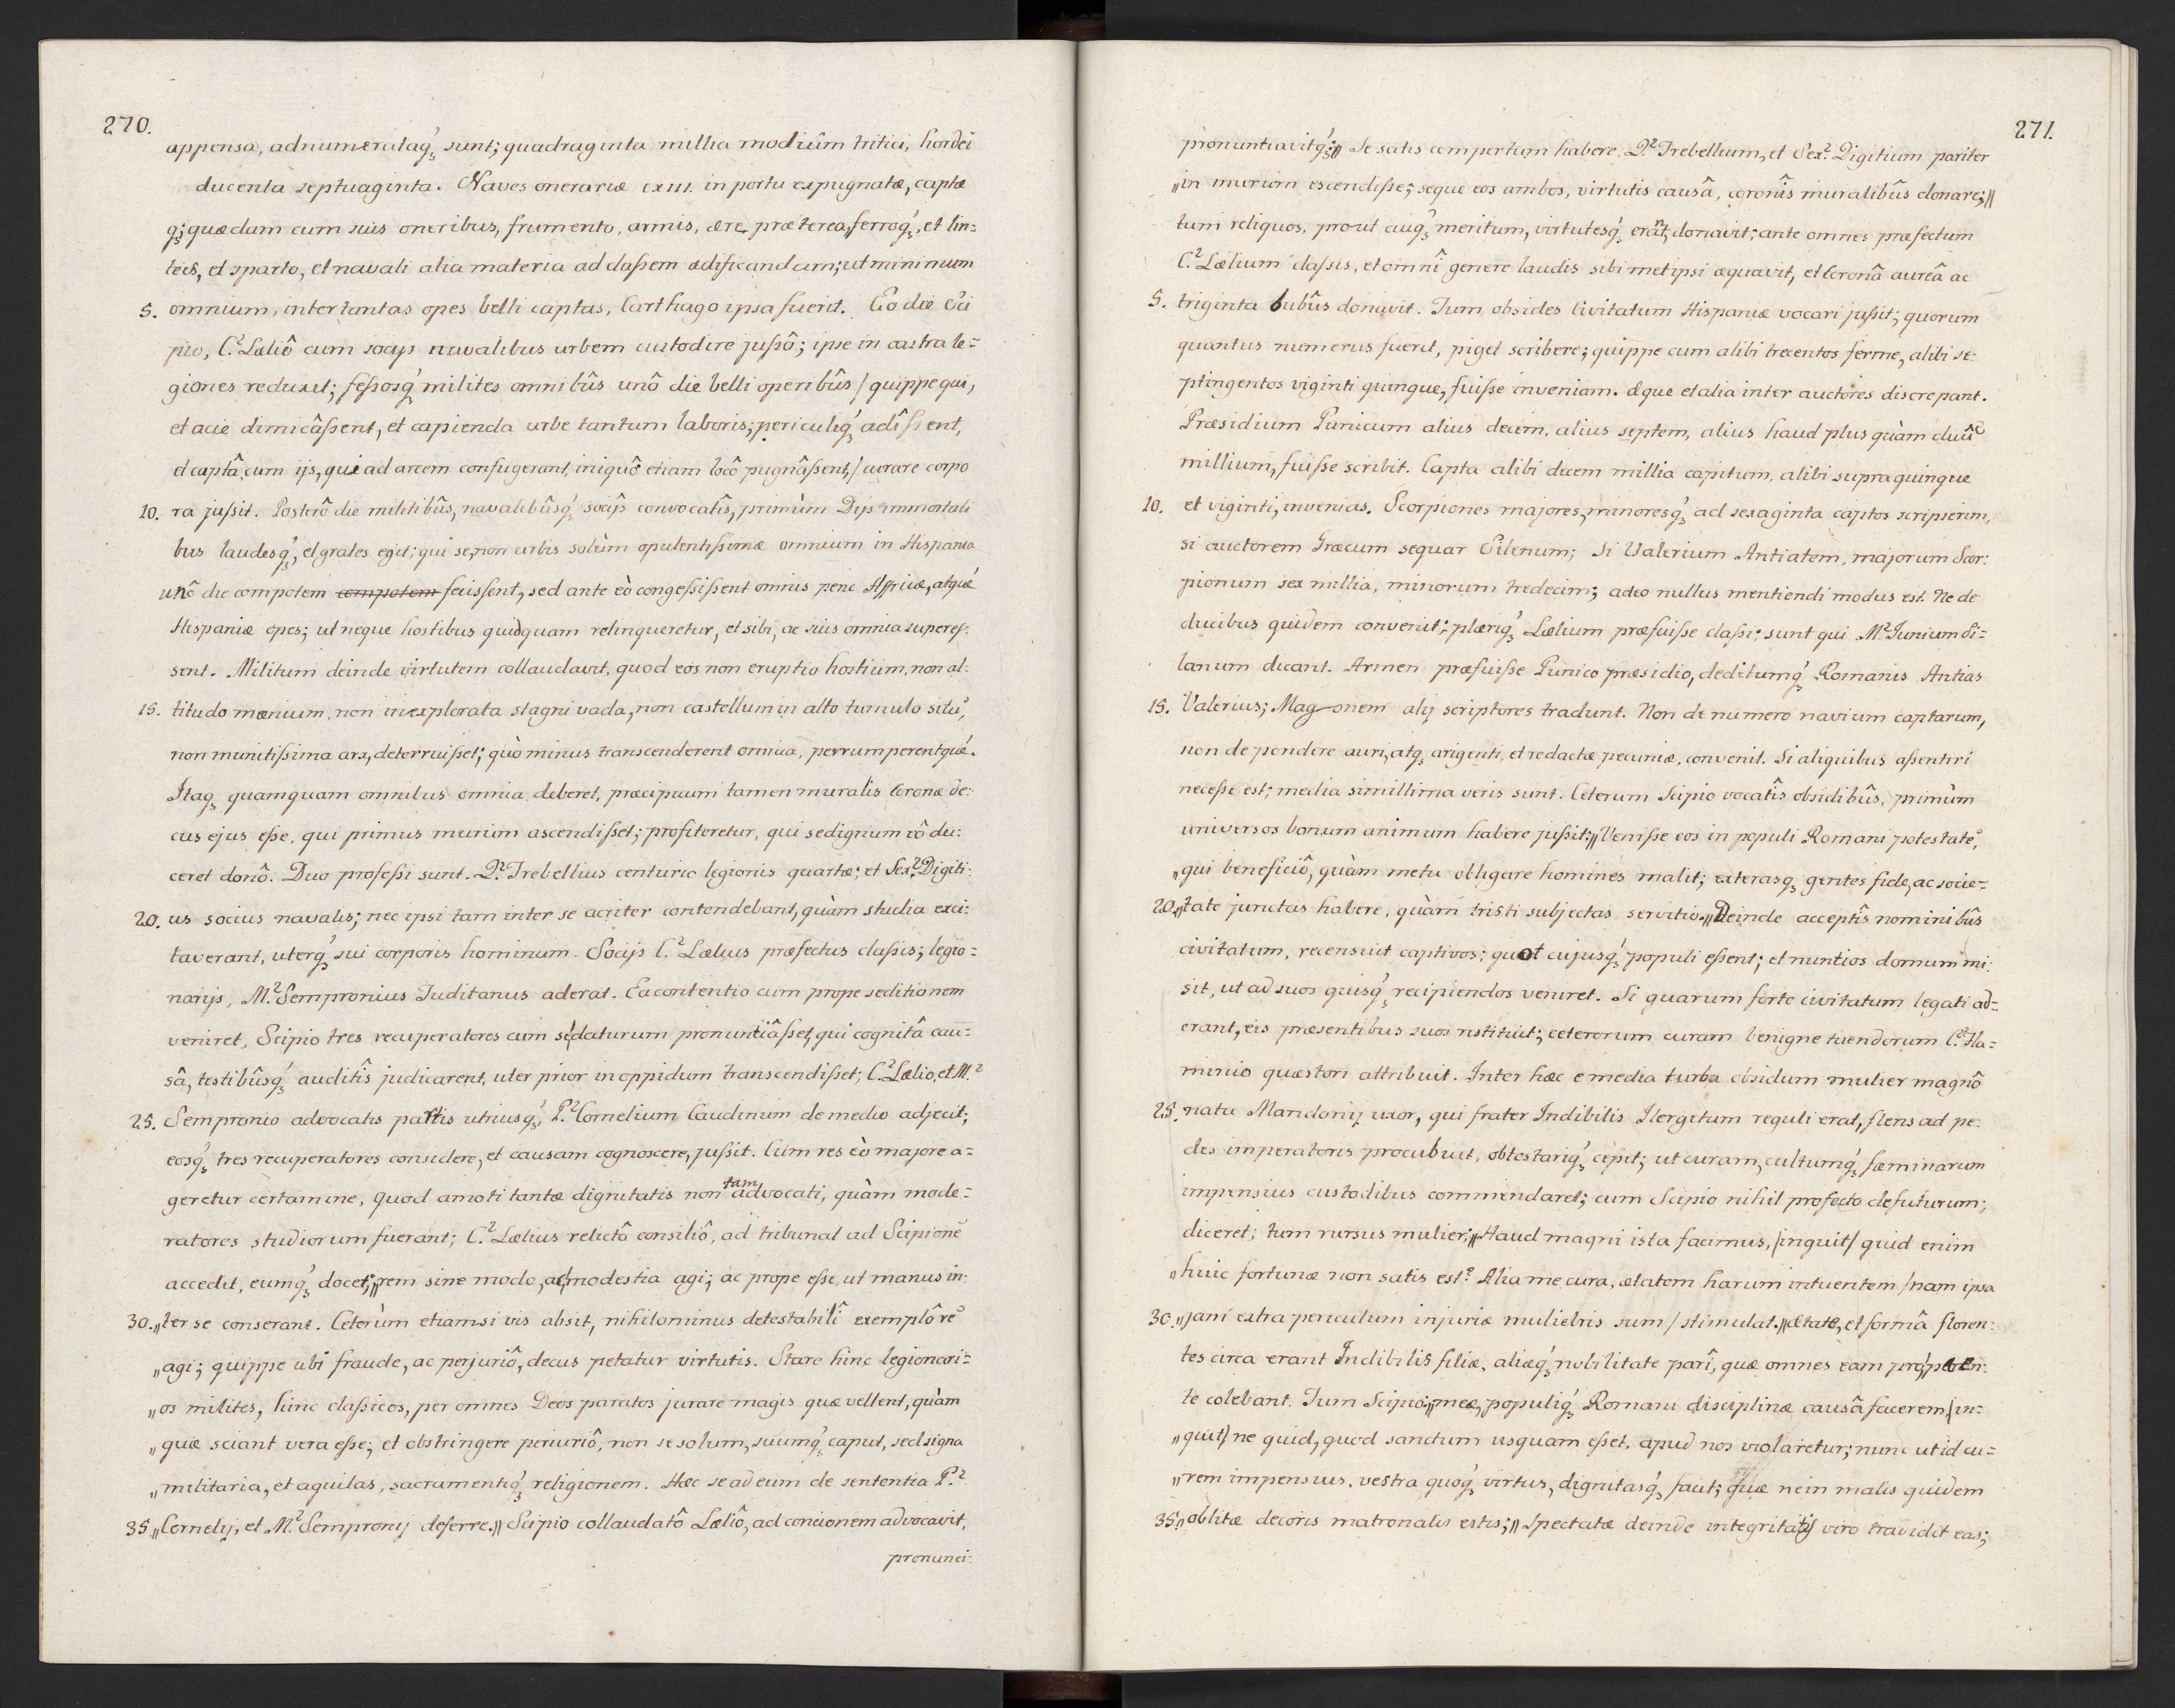 270.
appensa, adnumerataq́ꝫ sunt; quadraginta millia modiûm tritici, hordei
ducenta septuaginta. Naves onerariæ cxiii. in portu expugnatæ, captæ
q́ꝫ; quædam cum suis oneribus, frumento, armis, ære præterea, ferroq́ꝫ, et lin=
teis, et sparto, et navali alia materia ad classem ædificandam; ut minimum
5. omnium, inter tantas opes belli captas, Carthago ipsa fuerit. Eo die Sci
pio, C.² Læliô cum socijs navalibus urbem custodire jussô; ipse in castra le=
giones reduxit; fessosq́ꝫ milites omnibûs unô die belli operibûs / quippe qui,
et acie dimicâssent, et capienda urbe tantum laboris; periculiq́ꝫ adîssent,
et captâ, cum ijs, qui ad arcem confugerant, iniquô etiam locô pugnâssent, / curare corpo
10. ra jussit. Posterô die militibûs, navalibûsq́ꝫ socijs convocatîs, primùm Dijs immortali
bus laudesq́ꝫ, et grates egit; qui se, non urbis solùm opulentissimæ omnium in Hispania
unô die compotem compotem fecissent, sed ante eò congessissent omnius pene Affricæ, atqué
Hispaniæ opes; ut neque hostibus quidquam relinqueretur, et sibi, ac suis omnia superes=
sent. Militum deinde virtutem collaudavit, quod eos non eruptio hostium, non al=
15. titudo mœnium, non inexplorata stagni vada, non castellum in alto tumulo sitū,
non munitissima arx, deterruisset; quò minus transcenderent omnia, perrumperentqué.
Itaqꝫ quamquam omnibus omnia deberet, præcipuum tamen muralis Coronæ de=
cus ejus esse, qui primus murum ascendisset; profiteretur, qui se dignum eô du=
ceret donô. Duo professi sunt. Q.² Trebellius centurio legionis quartæ; et Sex.² Digiti=
20. us socius navalis; nec ipsi tam inter se acriter contendebant, quàm studia exci=
taverant, uterq́ꝫ sui corporis hominum. Socijs C.² Lælius præfectus classis; legio=
narijs, M.² Sempronius Tuditanus aderat. Ea contentio cum prope seditionem
veniret, Scipio tres recuperatores cum se daturum pronuntiâsset, qui cognitâ cau=
sâ, testibûsq́ꝫ auditîs judicarent, uter prior in oppidum transcendisset; C.² Lælio, et M.²
25. Sempronio advocatis partis utriusq́ꝫ, P.² Cornelium Caudinum de medio adjecit;
eosq́ꝫ tres recuperatores considere, et causam cognoscere, jussit. Cùm res eò majore a=
geretur certamine, quod amoti tantæ dignitatis non tam advocati, quàm mode=
ratores studiorum fuerant; C.² Lælius relictô consiliô, ad tribunal ad Scipionē
accedit, eumq́ꝫ docet; „rem sine modo, ac modestia agi; ac prope esse, ut manus in=
30. „ter se conserant. Ceterùm etiamsi vis absit, nihilominus detestabilî exemplô rē
„agi; quippe ubi fraude, ac perjuriô, decus petatur virtutis. Stare hinc legionari=
„os milites, hinc classicos, per omnes Deos paratos jurare magis quæ vellent, quàm
„quæ sciant vera esse; et obstringere periuriô, non se solum, suumq́ꝫ caput, sed signa
„militaria, et aquilas, sacramentiq́ꝫ religionem. Hæc se ad eum de sententia P.²
35. „Cornelij, et M.² Sempronij deferre.„ Scipio collaudatô Læliô, ad concionem advocavit,
pronunci=
271.
pronuntiavitq́ꝫ; „Se satis compertum habere, Q.² Trebellium, et Sex.² Digitium pariter
„in murum escendisse; seque eos ambos, virtutis causâ, coronîs muralibûs donare;„
tum reliquos, prout cuiq́ꝫ meritum, virtutesq́ꝫ erant, donavit; ante omnes præfectum
C.² Lælium classis, et omnî genere laudis sibimet ipsi æquavit, et Coronâ aureâ ac
5. triginta bubûs donavit. Tum obsides Civitatum Hispaniæ vocari jussit; quorum
quantus numerus fuerit, piget scribere; quippe cum alibi trecentos ferme, alibi se=
ptingentos viginti quinque, fuisse inveniam. Æque et alia inter auctores discrepant.
Præsidium Punicum alius decem, alius septem, alius haud plus quàm duûm
millium, fuisse scribit. Capta alibi decem millia capitum, alibi supra quinque
10. et viginti, invenias. Scorpiones majores, minoresq́ꝫ ad sexaginta captos scripserim,
si auctorem Græcum sequar Silenum; Si Valerium Antiatem, majorum Scor=
pionum sex millia, minorum tredecim; adeo nullus mentiendi modus est. Ne de
ducibus quidem convenit; pleriq́ꝫ Lælium præfuisse classi; sunt qui M.² Junium Si=
lanum dicant. Armen præfuisse Punico præsidio, deditumq́ꝫ Romanis Antias
15. Valerius; Magonem alij scriptores tradunt. Non de numero navium captarum,
non de pondere auri, atqꝫ argenti, et redactæ pecuniæ, convenit. Si aliquibus assentiri
necesse est; media simillima veris sunt. Ceterum Scipio vocatîs obsidibûs, primùm
universos bonum animum habere jussit; „Venisse eos in populi Romani potestatē,
„qui beneficiô, quàm metu obligare homines malit; exterasqꝫ gentes fide, ac socie=
20. „tate junctas habere, quàm tristi subjectas servitio.„ Deinde acceptîs nominibûs
civitatum, recensuit captivos; quot cujusq́ꝫ populi essent; et nuntios domum mi=
sit, ut ad suos quisq́ꝫ recipiendos veniret. Si quarum forte civitatum legati ad=
erant, eis præsentibus suos restituit; ceterorum curam benigne tuendorum C.² Fla=
minio quæstori attribuit. Inter hæc e media turba obsidum mulier magnô
25. natu Mandonij uxor, qui frater Indibilis Ilergetum reguli erat, flens ad pe=
des imperatoris procubuit, obtestariq́ꝫ cepit; ut curam, cultumq́ꝫ fæminarum
impensius custodibus commendaret; cum Scipio nihil profecto defuturum;
diceret; tum rursus mulier; „Haud magni ista facimus, /inquit/ quid enim
„huic fortunæ non satis est? Alia me cura, ætatem harum intuentem /nam ipsa
30. „jam extra periculum injuriæ muliebris sum/ stimulat.„ Ætate, et formâ floren=
tes circa erant Indibilis filiæ, aliæq́ꝫ nobilitate parî, quæ omnes eam pro paren=
te colebant. Tum Scipio; „meæ, populiq́ꝫ Romani disciplinæ causâ facerem, /in=
„quit/ ne quid, quod sanctum usquam esset, apud nos violaretur; nunc ut id cu=
„rem impensius, vestra quoqꝫ virtus, dignitasq́ꝫ facit; quæ ne in malis quidem
35. „oblitæ decoris matronalis estis;„ Spectatæ deinde integritatis viro tradidit eas;